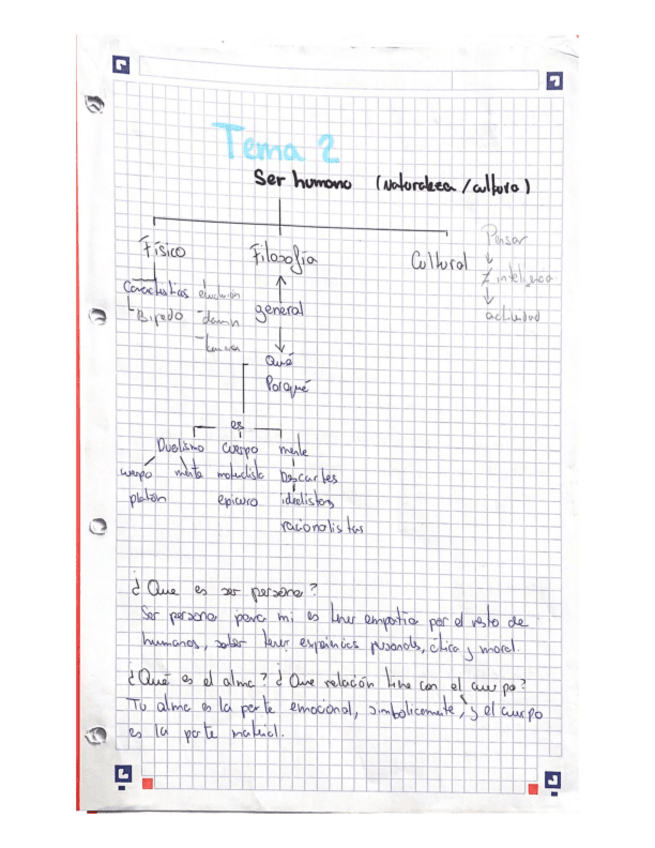 Tema 2
Ser humano (Naturaleza / cultura)
Físico Filosofía Cultural Pensar
Características evolución ≠ inteligencia
Bipedo - Darwin general actividad
Qué
Porqué
es
Dualismo cuerpo mente
cuerpo mente materialista Descartes
platón epicuro idealistas
racionalistas
¿Que es ser persona?
Ser persona para mi es tener empatia por el resto de
humanos, saber tener experiencias personals, etica y moral.
¿Qué es el alma? ¿Que relación tine con el cuerpo?
Tu alma es la parte emocional, simbolicamente, y el cuerpo
es la parte material.